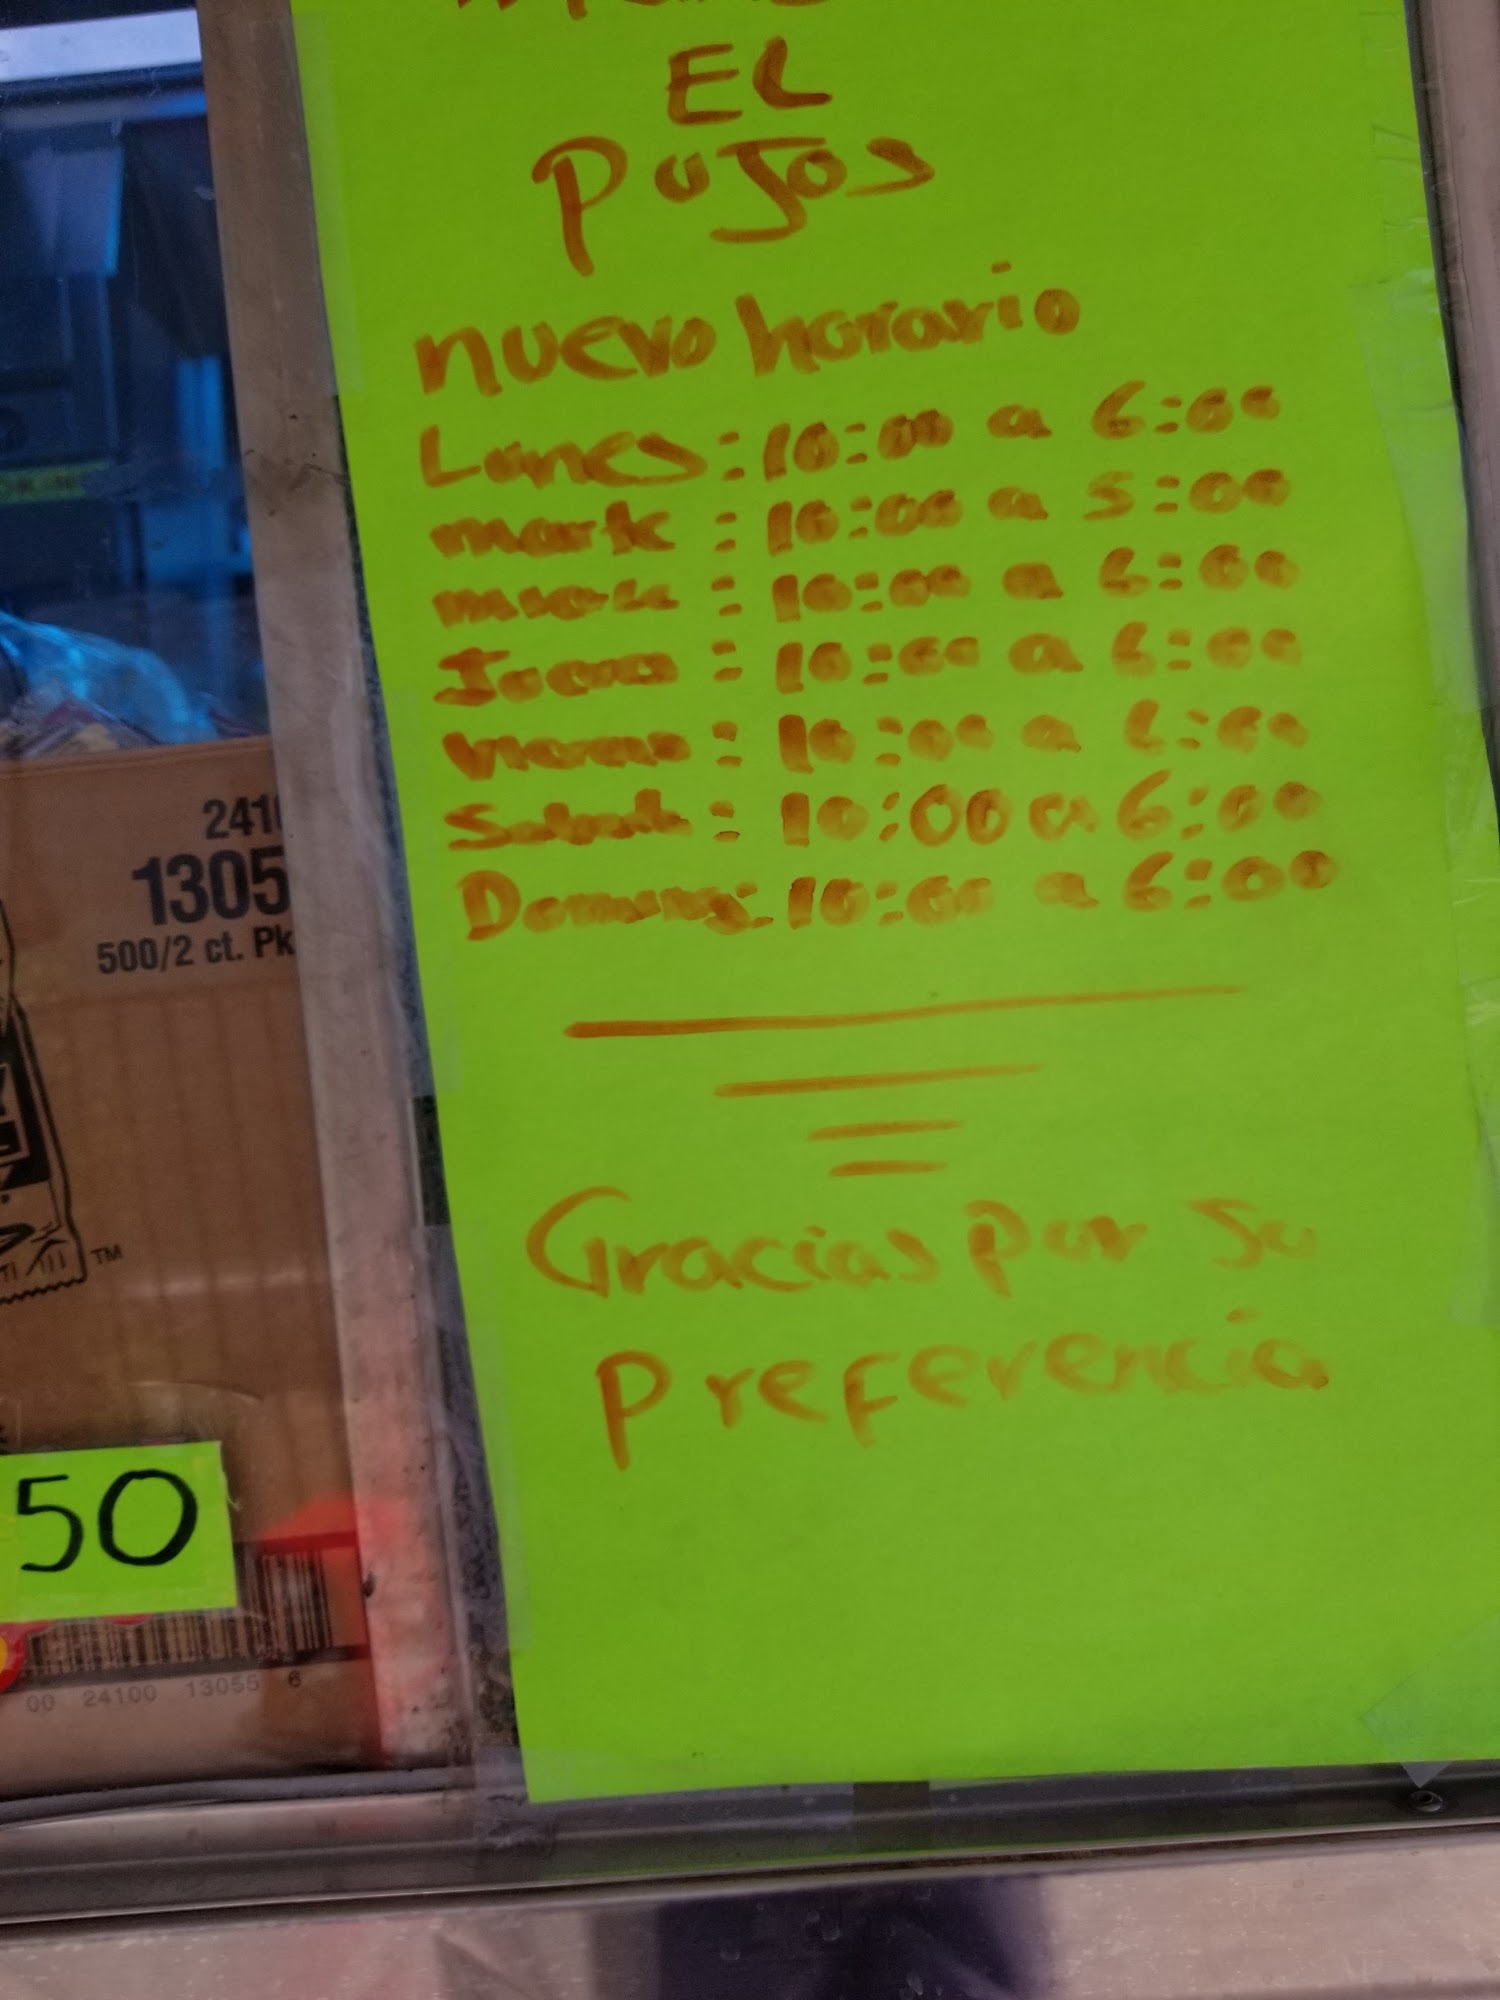 EL
Pujos
nuevo horario
Lunes: 10:00 a 6:00
marte : 10:00 a 5:00
: 10:00 a 6:00
Jueves : 10:00 a 6:00
Viernes : 10:00 a 6:00
Sabado : 10:00 a 6:00
Doming: 10:00 a 6:00
Gracias por su
Preferencia
241
1305
500/2 ct. Pk
TM
50
00 24100 13055 6